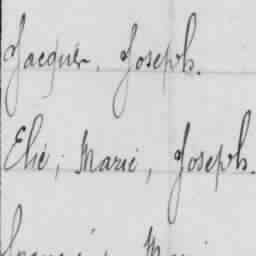 Jacques, Joseph.
Elie, Marie, Joseph.